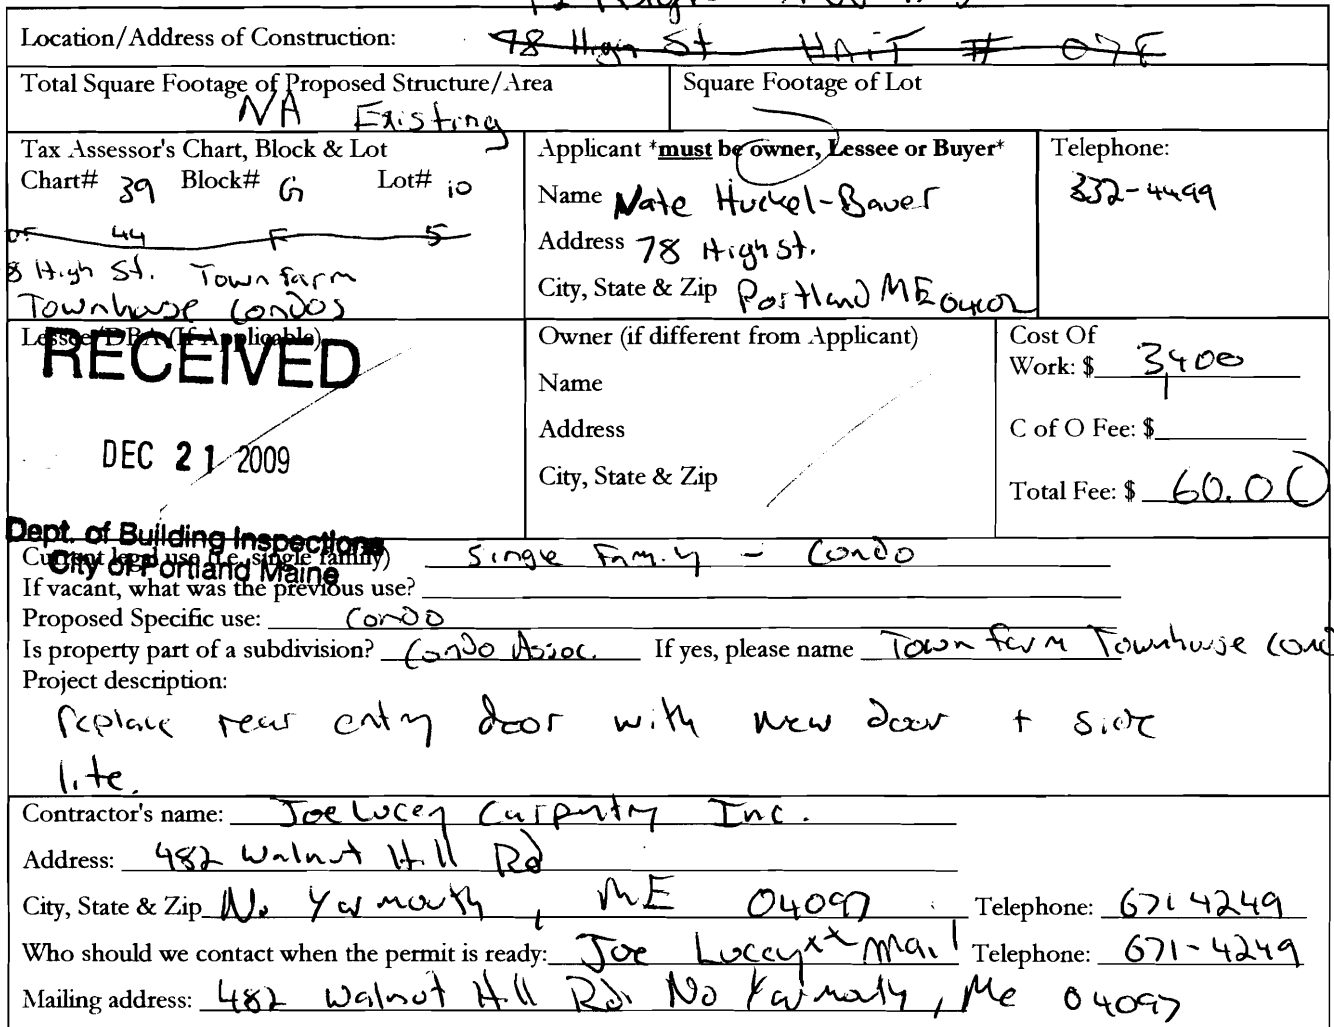 Location/Address of Construction: 78 High St UNIT # 07E
Total Square Footage of Proposed Structure/Area
NA Existing
Square Footage of Lot
Tax Assessor's Chart, Block & Lot
Chart# 39 Block# G Lot# 10
or 44 F 5
8 High St. Town farm
Townhouse Condos
Applicant *must be owner, Lessee or Buyer*
Name Nate Huckel-Bauer
Address 78 High St.
City, State & Zip Portland ME 04102
Telephone:
332-4499
Lessee/DBA (If Applicable)
RECEIVED
DEC 21 2009
Dept. of Building Inspections
City of Portland Maine
Owner (if different from Applicant)
Name
Address
City, State & Zip
Cost Of
Work: $ 3,400
C of O Fee: $
Total Fee: $ 60.00
Current legal use (i.e. single family) Single Family - Condo
If vacant, what was the previous use?
Proposed Specific use: Condo
Is property part of a subdivision? Condo Assoc. If yes, please name Town farm Townhouse Cond
Project description:
replace rear entry door with new door + side
lite.
Contractor's name: Joe Lucey Carpentry Inc.
Address: 482 Walnut Hill Rd
City, State & Zip No Yarmouth, ME 04097 Telephone: 671 4249
Who should we contact when the permit is ready: Joe Lucey ** Mail Telephone: 671-4249
Mailing address: 482 Walnut Hill Rd. No Yarmouth, Me 04097